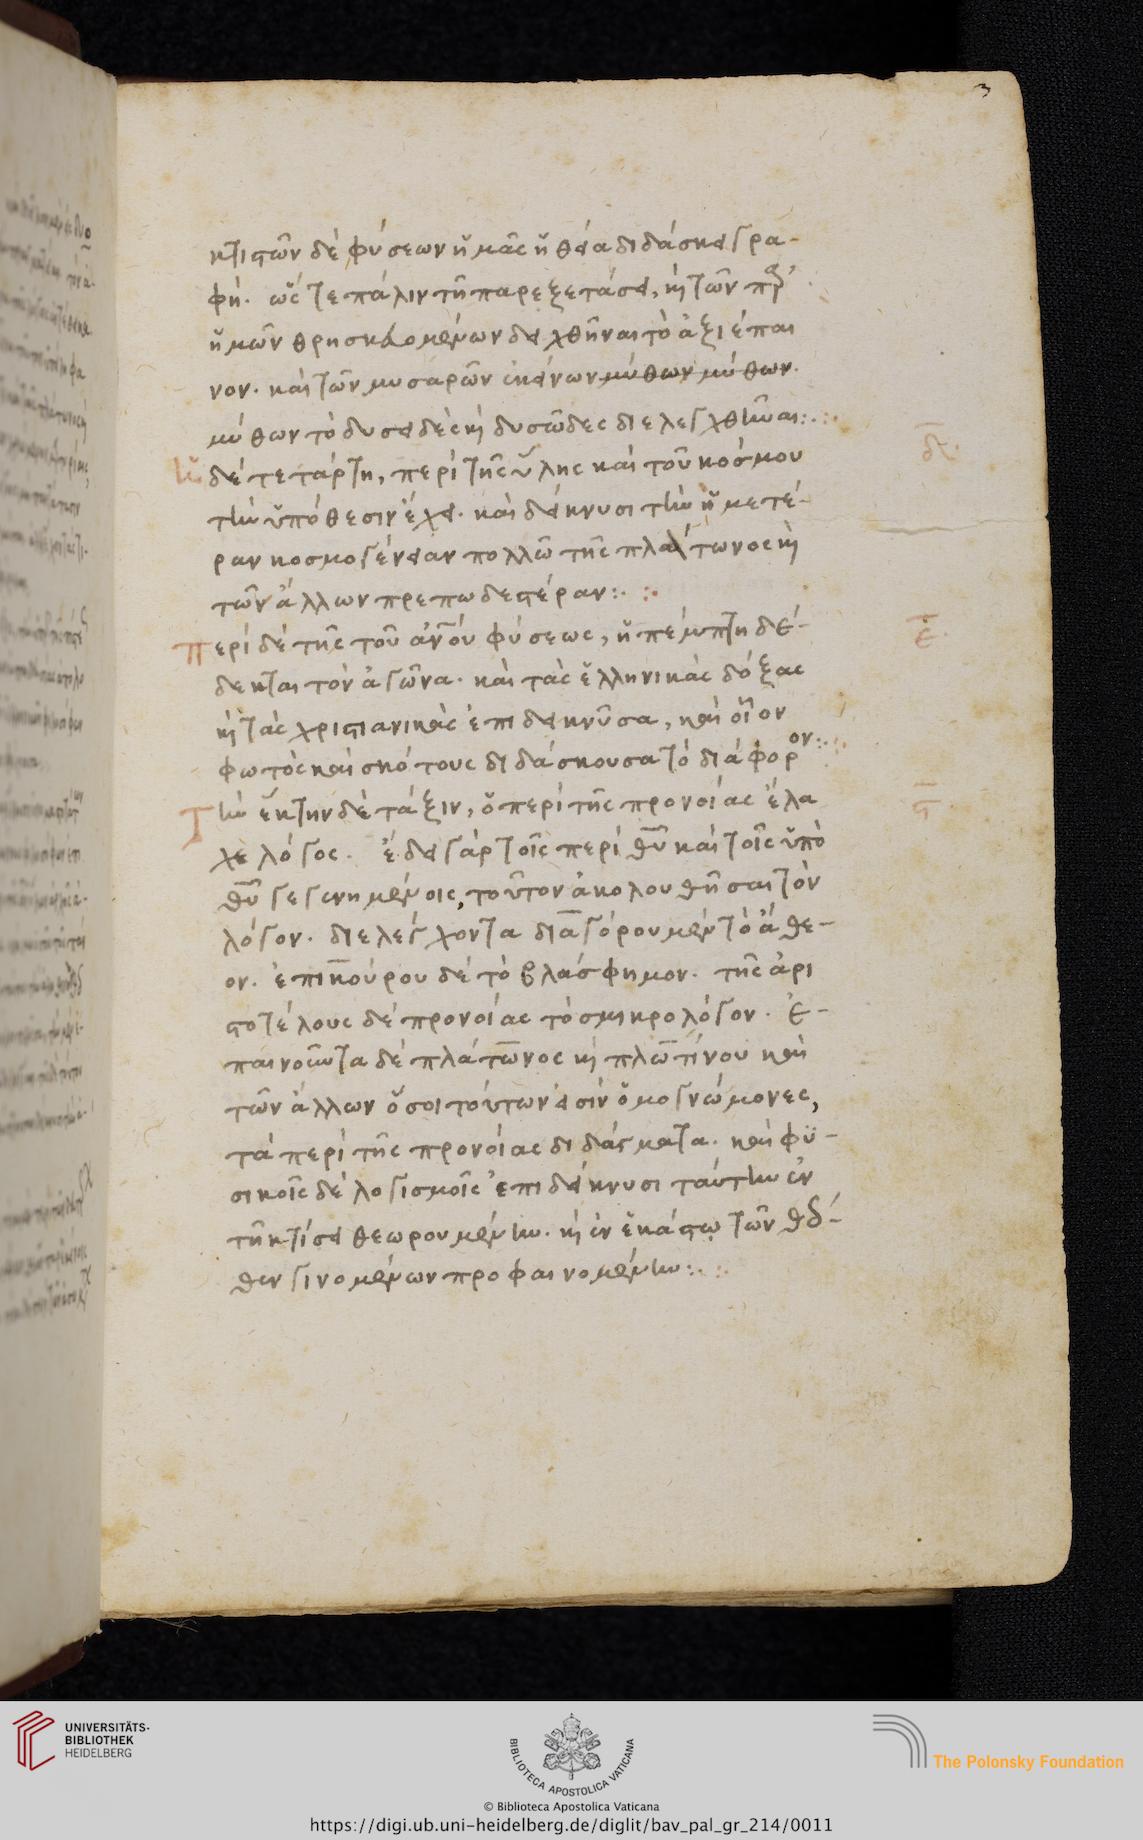 3
κτιστῶν δὲ φύσεων ἡμᾶς ἡ θεία διδάσκει γρα-
φή. ὥστε πάλιν τῇ παρεξετάσει, καὶ τῶν παρ'
ἡμῶν θρησκευομένων δειχθῆναι τὸ ἀξιέπαι
νον. καὶ τῶν μυσαρῶν ἐκείνων μύθων μύθων.
μύθων τὸ δυσειδὲς καὶ δυσῶδες διελεγχθῆναι:.
δ
Ἡ δὲ τετάρτη, περὶ τῆς ὕλης καὶ τοῦ κόσμου
τὴν ὑπόθεσιν ἔχει. καὶ δείκνυσι τὴν ἡμετέ-
ραν κοσμογένειαν πολλῷ τῆς πλάτωνος καὶ
τῶν ἄλλων πρεπωδεστέραν:.
ε
Περὶ δὲ τῆς τοῦ ἀνου φύσεως, ἡ πέμπτη δέ-
δεκται τὸν ἀγῶνα. καὶ τὰς ἑλληνικὰς δόξας
καὶ τὰς χριστιανικὰς ἐπιδεικνῦσα, καὶ οἷον
φωτὸς καὶ σκότους διδάσκουσα τὸ διάφορον:.
ϛ
Τὴν ἕκτην δὲ τάξιν, ὁ περὶ τῆς προνοίας ἔλα
χε λόγος. ἔδει γὰρ τοῖς περὶ θυ καὶ τοῖς ὑπὸ
θυ γεγενημένοις, τοῦτον ἀκολουθῆσαι τὸν
λόγον. διελέγχοντα διαγόρου μὲν τὸ ἄθε-
ον. ἐπικούρου δὲ τὸ βλάσφημον. τῆς ἀρι
στοτέλους δὲ προνοίας τὸ σμικρολόγον. ἐ-
παινοῦντα δὲ πλάτωνος καὶ πλωτίνου καὶ
τῶν ἄλλων ὅσοι τούτων εἰσὶν ὁμογνώμονες,
τὰ περὶ τῆς προνοίας διδάγματα. καὶ φϋ-
σικοῖς δὲ λογισμοῖς ἐπιδείκνυσι ταύτην ἐν
τῇ κτίσει θεωρουμένην. καὶ ἐν ἑκάστῳ τῶν θεό-
θεν γινομένων προφαινομένην:.
UNIVERSITÄTS-
BIBLIOTHEK
HEIDELBERG
BIBLIOTECA APOSTOLICA VATICANA
© Biblioteca Apostolica Vaticana
The Polonsky Foundation
https://digi.ub.uni-heidelberg.de/diglit/bav_pal_gr_214/0011